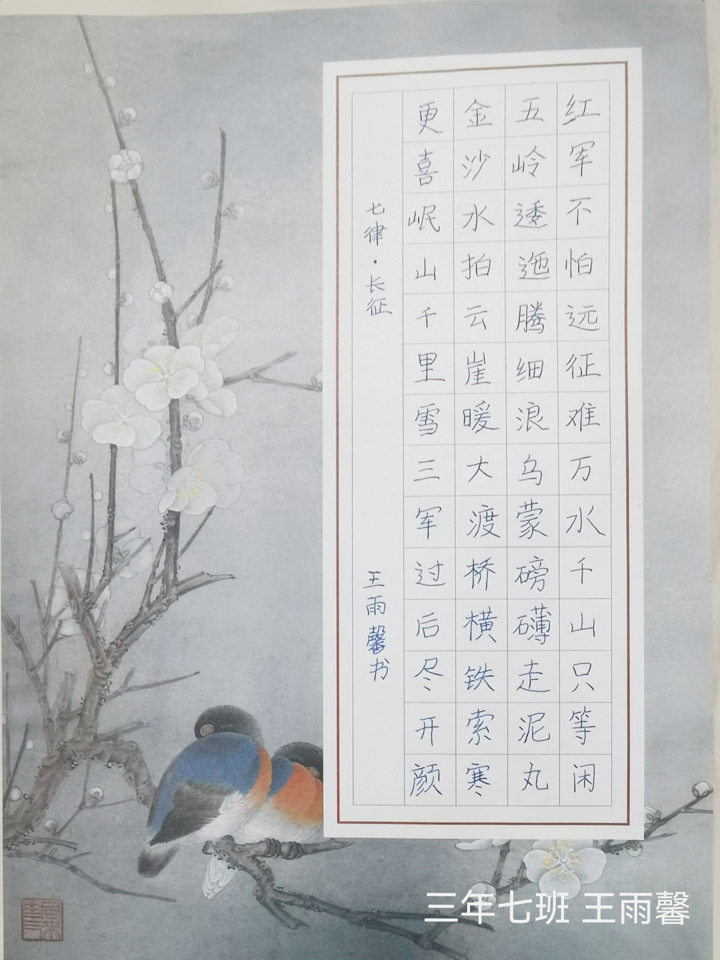 红军不怕远征难万水千山只等闲
五岭逶迤腾细浪乌蒙磅礴走泥丸
金沙水拍云崖暖大渡桥横铁索寒
更喜岷山千里雪三军过后尽开颜
七律·长征
王雨馨书
三年七班 王雨馨